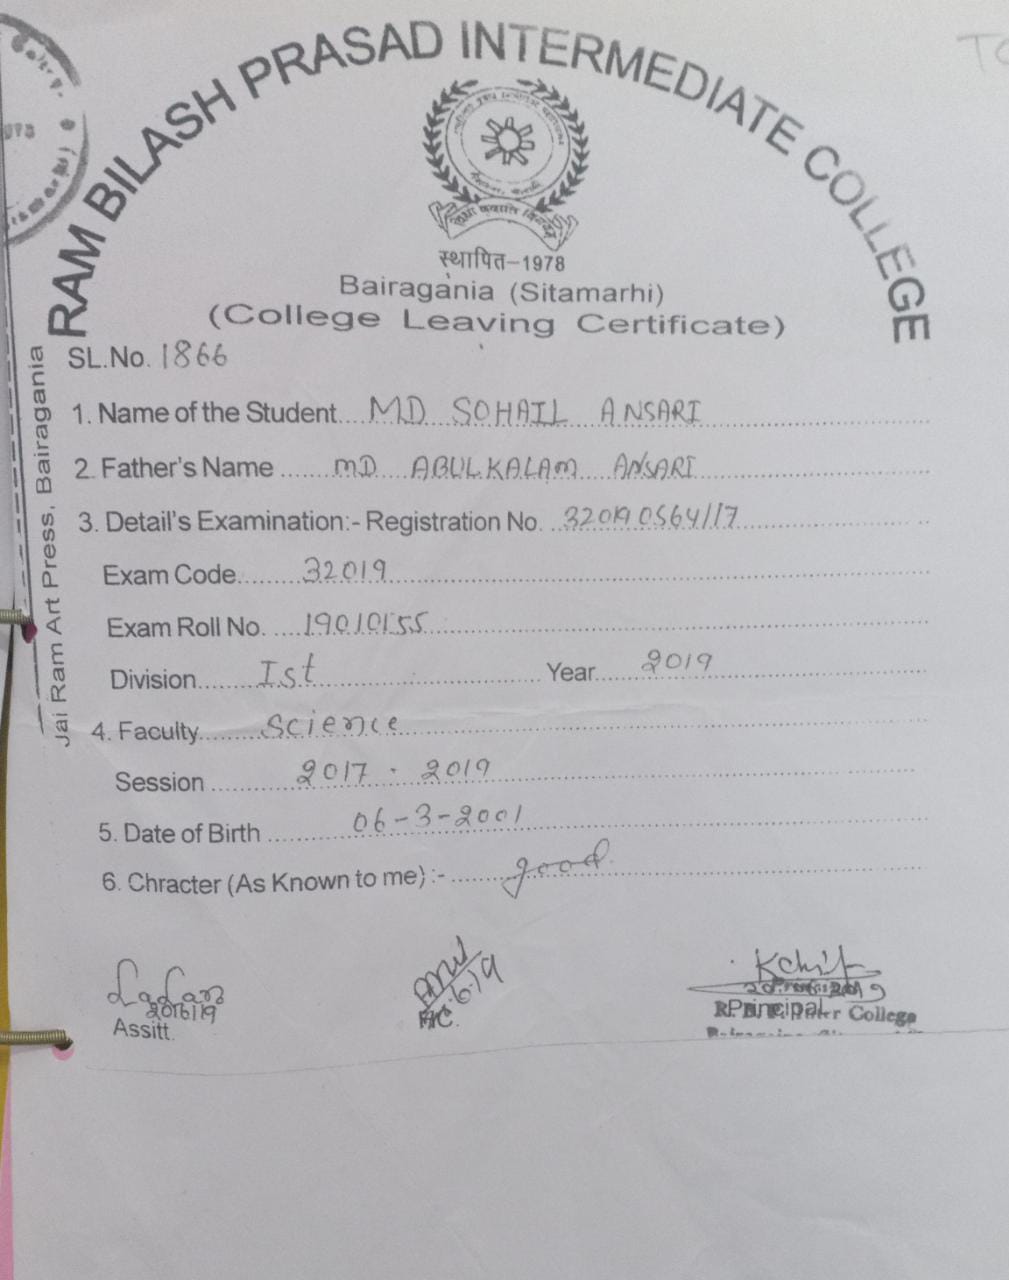 RAM BILASH PRASAD INTERMEDIATE COLLEGE
TC
स्थापित-1978
Bairagania (Sitamarhi)
(College Leaving Certificate)
SL.No. 1866
1. Name of the Student MD SOHAIL ANSARI
2. Father's Name MD ABULKALAM ANSARI
3. Detail's Examination:- Registration No. 320190564/17
Exam Code 32019
Exam Roll No. 19010155
Division Ist Year 2019
4. Faculty Science
Session 2017 - 2019
5. Date of Birth 06-3-2001
6. Chracter (As Known to me) :- good
20/6/19
Assitt.
Principal
College
Jai Ram Art Press, Bairagania